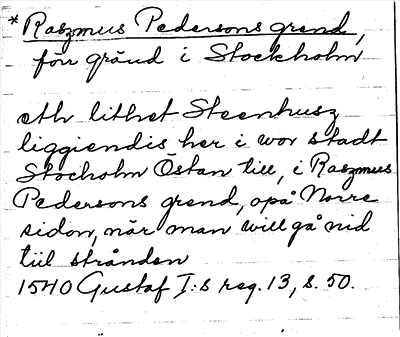 * Raszmus Pedersons grend,
förr gränd i Stockholm
eth lithet Steenhusz
liggiendis her i wor stadt
Stocholm Östan till, i Raszmus
Pedersons grend, opå Norre
sidon, når man will gå nid
tiil strånden
1540 Gustaf I:s reg. 13, s. 50.